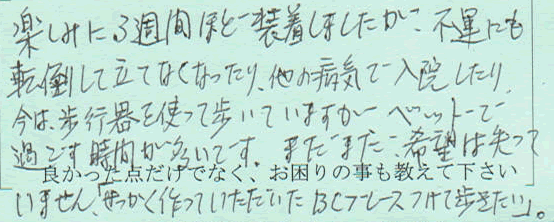 楽しみに3週間ほど装着しましたが、不運にも
転倒して立てなくなったり、他の病気で入院したり
今は、歩行器を使って歩いていますがベットで
過ごす時間が多いです。まだまだ希望は失って
良かった点だけでなく、お困りの事も教えて下さい
いません、せっかく作っていただいたBCブレースつけて歩きたい」。